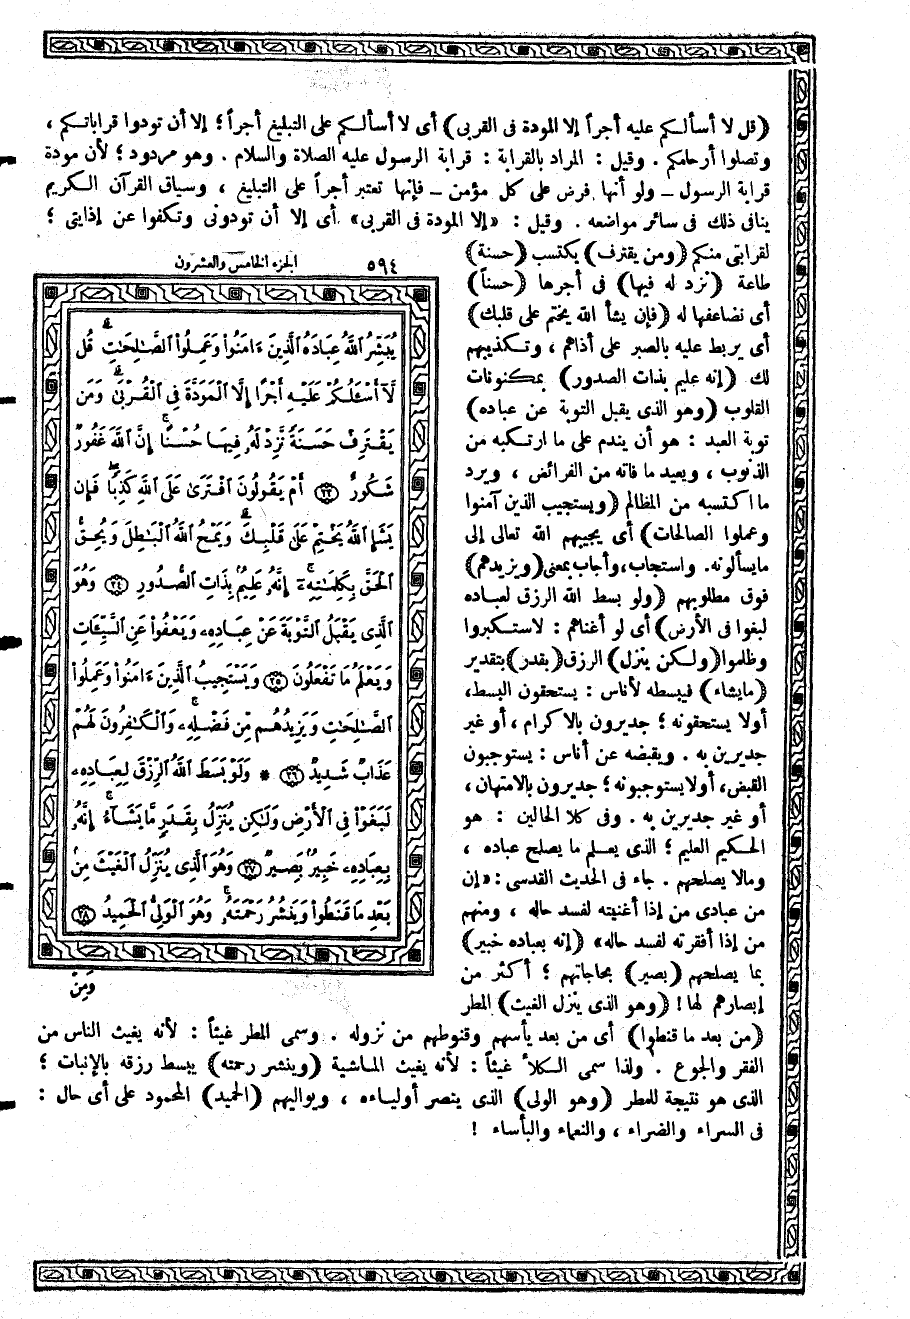 (قل لا أسألكم عليه أجراً إلا المودة فى القربى) أى لا أسألكم على التبليغ أجراً؛ إلا أن تودوا قراباتكم ،
وتصلوا أرحامكم . وقيل : المراد بالقرابة : قرابة الرسول عليه الصلاة والسلام . وهو مردود؛ لأن مودة
قرابة الرسول ــ ولو أنها فرض على كل مؤمن ــ فإنها تعتبر أجراً على التبليغ ، وسياق القرآن الكريم
ينافى ذلك فى سائر مواضعه . وقيل : «إلا المودة فى القربى» أى إلا أن تودونى وتكفوا عن إذايتى ؛
لقرابتى منكم (ومن يقترف) يكتسب (حسنة)
طاعة (نزد له فيها) فى أجرها (حسناً)
أى نضاعفها له (فإن يشأ الله يختم على قلبك)
أى يربط عليه بالصبر على أذاهم ، وتكذيبهم
لك (إنه عليم بذات الصدور) بمكنونات
القلوب (وهو الذى يقبل التوبة عن عباده)
توبة العبد : هو أن يندم على ما ارتكبه من
الذنوب ، ويعيد ما فاته من الفرائض ، ويرد
ما اكتسبه من المظالم (ويستجيب الذين آمنوا
وعملوا الصالحات) أى يجيبهم الله تعالى إلى
مايسألونه. واستجاب، وأجاب بمعنى (ويزيدهم)
فوق مطلوبهم (ولو بسط الله الرزق لعباده
لبغوا فى الأرض) أى لو أغناهم : لاستكبروا
وظلموا (ولكن ينزل) الرزق (بقدر) بتقدير
(مايشاء) فيبسطه لأناس : يستحقون البسط،
أولا يستحقونه ؛ جديرون بالاكرام ، أو غير
جديرين به . ويقبضه عن أناس : يستوجبون
القبض، أولا يستوجبونه ؛ جديرون بالامتهان،
أو غير جديرين به . وفى كلا الحالين : هو
الحكيم العليم ؛ الذى يعلم ما يصلح عباده ،
ومالا يصلحهم . جاء فى الحديث القدسى : «إن
من عبادى من إذا أغنيته لفسد حاله ، ومنهم
من إذا أفقرته لفسد حاله» (إنه بعباده خبير)
بما يصلحهم (بصير) بحاجاتهم ؛ أكثر من
إبصارهم لها ! (وهو الذى ينزل الغيث) المطر
(من بعد ما قنطوا) أى من بعد يأسهم وقنوطهم من نزوله . وسمى المطر غيثاً : لأنه يغيث الناس من
الفقر والجوع . ولذا سمى الكلأ غيثاً : لأنه يغيث الماشية (وينشر رحمته) يبسط رزقه بالإنبات ؛
الذى هو نتيجة للمطر (وهو الولى) الذى ينصر أولياءه ، ويواليهم (الحميد) المحمود على أى حال :
فى السراء والضراء ، والنعماء والبأساء !
٥٩٤ الجزء الخامس والعشرون
يُبَشِّرُ ٱللَّهُ عِبَادَهُ ٱلَّذِينَ ءَامَنُوا۟ وَعَمِلُوا۟ ٱلصَّـٰلِحَـٰتِ ۗ قُل
لَّآ أَسْـَٔلُكُمْ عَلَيْهِ أَجْرًا إِلَّا ٱلْمَوَدَّةَ فِى ٱلْقُرْبَىٰ ۗ وَمَن
يَقْتَرِفْ حَسَنَةً نَّزِدْ لَهُۥ فِيهَا حُسْنًا ۚ إِنَّ ٱللَّهَ غَفُورٌ
شَكُورٌ ﴿٢٣﴾ أَمْ يَقُولُونَ ٱفْتَرَىٰ عَلَى ٱللَّهِ كَذِبًا ۖ فَإِن
يَشَإِ ٱللَّهُ يَخْتِمْ عَلَىٰ قَلْبِكَ ۗ وَيَمْحُ ٱللَّهُ ٱلْبَـٰطِلَ وَيُحِقُّ
ٱلْحَقَّ بِكَلِمَـٰتِهِۦٓ ۚ إِنَّهُۥ عَلِيمٌۢ بِذَاتِ ٱلصُّدُورِ ﴿٢٤﴾ وَهُوَ
ٱلَّذِى يَقْبَلُ ٱلتَّوْبَةَ عَنْ عِبَادِهِۦ وَيَعْفُوا۟ عَنِ ٱلسَّيِّـَٔاتِ
وَيَعْلَمُ مَا تَفْعَلُونَ ﴿٢٥﴾ وَيَسْتَجِيبُ ٱلَّذِينَ ءَامَنُوا۟ وَعَمِلُوا۟
ٱلصَّـٰلِحَـٰتِ وَيَزِيدُهُم مِّن فَضْلِهِۦ ۚ وَٱلْكَـٰفِرُونَ لَهُمْ
عَذَابٌ شَدِيدٌ ﴿٢٦﴾ * وَلَوْ بَسَطَ ٱللَّهُ ٱلرِّزْقَ لِعِبَادِهِۦ
لَبَغَوْا۟ فِى ٱلْأَرْضِ وَلَـٰكِن يُنَزِّلُ بِقَدَرٍ مَّا يَشَآءُ ۚ إِنَّهُۥ
بِعِبَادِهِۦ خَبِيرٌۢ بَصِيرٌ ﴿٢٧﴾ وَهُوَ ٱلَّذِى يُنَزِّلُ ٱلْغَيْثَ مِنۢ
بَعْدِ مَا قَنَطُوا۟ وَيَنشُرُ رَحْمَتَهُۥ ۚ وَهُوَ ٱلْوَلِىُّ ٱلْحَمِيدُ ﴿٢٨﴾
وَمِنْ